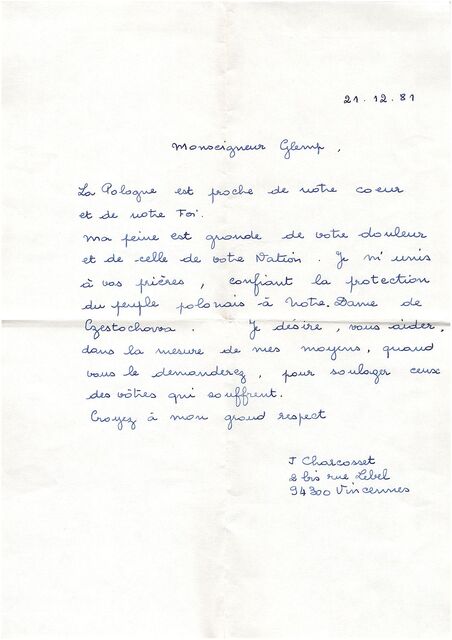 21.12.81
Monseigneur Glemp,
La Pologne est proche de notre coeur
et de notre Foi.
Ma peine est grande de votre douleur
et de celle de votre Nation. Je m'unis
à vos prières, confiant la protection
du peuple polonais à Notre. Dame de
Częstochova. Je désire, vous aider,
dans la mesure de mes moyens, quand
vous le demanderez, pour soulager ceux
des vôtres qui souffrent.
Croyez à mon grand respect
J Charcosset
2 bis rue Lebel
94300 Vincennes